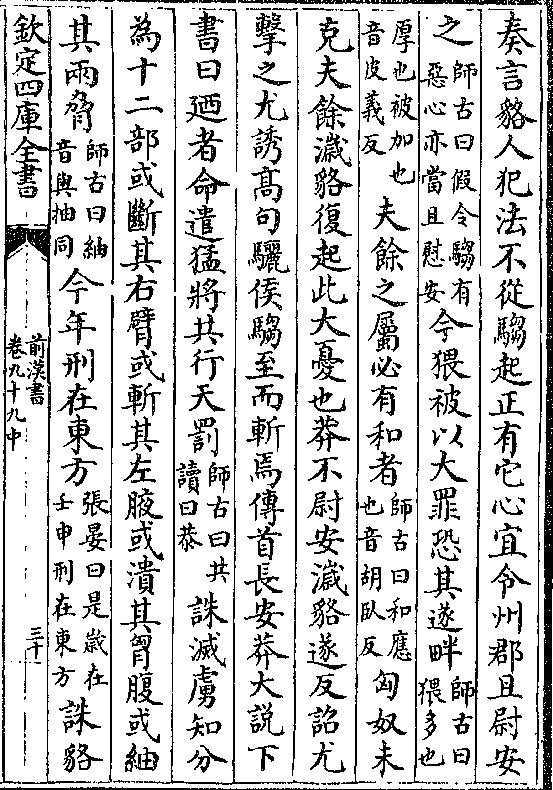 奏言貉人犯法不從騶起正有它心宜令州郡且尉安
之師古曰假令騶有惡心亦當且慰安今猥被以大罪恐其遂畔師古曰猥多也
厚也被加也音皮義反夫餘之屬必有和者師古曰和應也音胡臥反匈奴未
克夫餘濊貉復起此大憂也莽不尉安濊貉遂反詔尤
擊之尤誘髙句驪侯騶至而斬焉傳首長安莽大説下
書曰廼者命遣猛將共行天罰師古曰共讀曰恭誅滅虜知分
為十二部或斷其右臂或斬其左腋或潰其胷腹或紬
其兩脅師古曰紬音與抽同今年刑在東方張晏曰是歲在壬申刑在東方誅貉
欽定四庫全書
前漢書
卷九十九中
三十